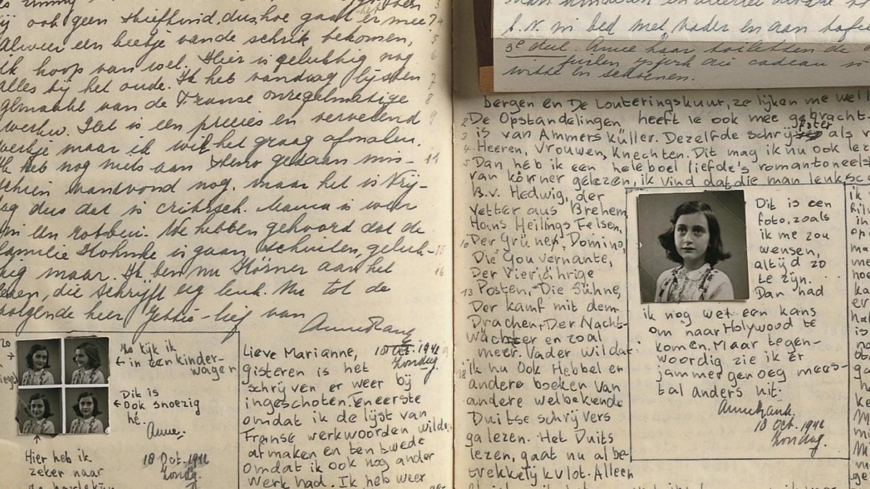 ij ook geen stiefkind, dus hoe gaat er mee?
Alweer een beetje van de schrik bekomen,
ik hoop van wel. Hier is gelukkig nog
alles bij het oude. Ik heb vandaag lijsten
gemaakt van de Franse onregelmatige
werkw. Het is een precies en vervelend
werkje maar ik wil het graag afmaken.
Ik heb nog niets aan Steno gedaan mis-
schien vanavond nog, maar het is Vrij-
dag dus dat is critisch. Mama is weer
in een robbui. We hebben gehoord dat de
familie gaan schuilen, geluk-
kig maar. Ik ben nu Körner aan het
lezen, die schrijft erg leuk. Nu tot de
volgende keer Jettje-lief van
Anne Frank
Zo kijk ik
in een kinder-
wagen
Dit is
ook snoezig
hè.
Anne.
Hier heb ik
zeker naar
18 Oct. 1942
Zondag.
Lieve Marianne, 18 Oct. 1942
Zondag.
gisteren is het
schrijven er weer bij
ingeschoten. Eneerste
omdat ik de lijst van
Franse werkwoorden wilde
afmaken en ten twede
omdat ik ook nog ander
werk had. Ik heb weer
J. N. in bed met vader en aan tafel
3e deel. Anne haar toiletten de
cadeau
bergen en De Louteringskuur, ze lijken me wel
De Opstandelingen heeft ie ook mee gebracht.
is van Ammers Küller. Dezelfde schrijfster als v
Heeren, Vrouwen, Knechten. Dit mag ik nu ook lez
Dan heb ik een heleboel liefde's romantoneels
van körner gelezen, ik vind dat die man leuk sc
B.v. Hedwig, der
Vetter aus Brehem,
Hans Heilings Felsen,
Der Grüne Domino,
Die Gouvernante,
Der Vierjährige
Posten, Die Sühne,
Der Kamf mit dem
Drachen, Der Nacht-
wächter en zoal
meer. Vader wil dat
ik nu ook Hebbel en
andere boeken van
andere welbekende
Duitse schrijvers
ga lezen. Het Duits
lezen, gaat nu al be-
trekkelijk vlot. Alleen
Dit is een
foto, zoals
ik me zou
wensen,
altijd zo
te zijn.
Dan had
ik nog wel een kans
om naar Holywood te
komen. Maar tegen-
woordig zie ik er
jammer genoeg mees-
tal anders uit.
Anne Frank.
18 Oct. 1942
Zondag.